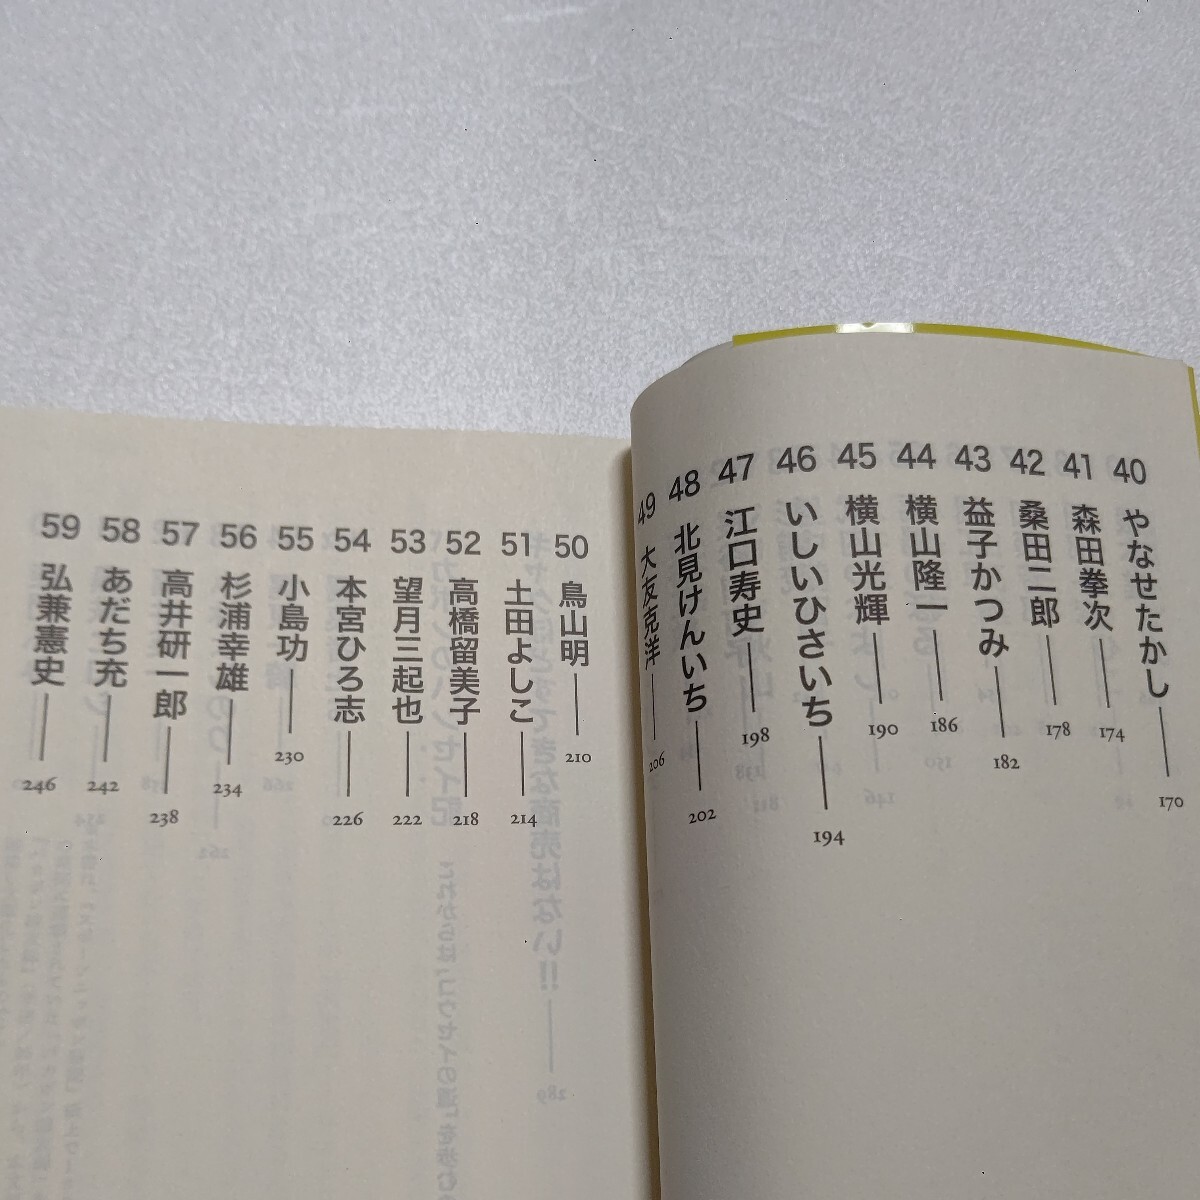 40 やなせたかし 170
41 森田拳次 174
42 桑田二郎 178
43 益子かつみ 182
44 横山隆一 186
45 横山光輝 190
46 いしいひさいち 194
47 江口寿史 198
48 北見けんいち 202
49 大友克洋 206
50 鳥山明 210
51 土田よしこ 214
52 高橋留美子 218
53 望月三起也 222
54 本宮ひろ志 226
55 小島功 230
56 杉浦幸雄 234
57 高井研一郎 238
58 あだち充 242
59 弘兼憲史 246